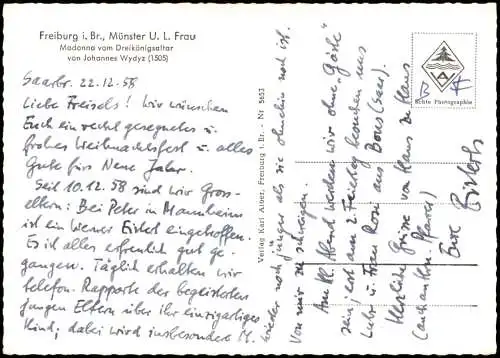 Freiburg i. Br., Münster U. L. Frau
Madonna vom Dreikönigsaltar
von Johannes Wydyz (1505)
Saarbr. 22.12.58
Liebe Freisels! Wir wünschen
Euch ein recht gesegnetes u.
frohes Weihnachtsfest u. alles
Gute fürs Neue Jahr.
Seit 10.12.58 sind wir Gross-
eltern: Bei Peter in Mannheim
ist ein kleiner Enkel eingetroffen.
Es ist alles erfreulich gut ge-
gangen. Täglich erhalten wir
telefon. Rapporte der begeisterten
jungen Eltern über ihr einzigartiges
Kind; dabei wird insbesondere M.
wieder noch jünger als sie ohnehin noch ist.
Von mir zu schweigen.
Am Hl. Abend werden wir ohne „Gäste"
sein; erst am 2. Feiertag kommen
u. Frau Rosi aus Bous (Saar).
Herzliche Grüsse von Haus zu Haus
Eure
Verlag Karl Alber, Freiburg i. Br. - Nr 5653
Echte Photographie